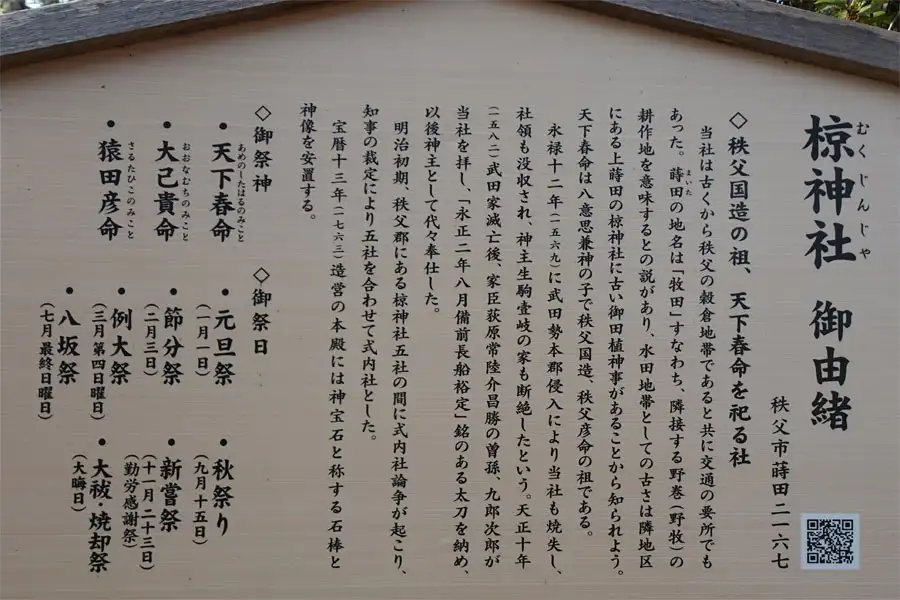 椋神社 御由緒
むくじんじゃ
秩父市蒔田二一六七
◇秩父国造の祖、天下春命を祀る社
当社は古くから秩父の穀倉地帯であると共に交通の要所でも
あった。蒔田の地名は「牧田」すなわち、隣接する野巻(野牧)の
まいた
耕作地を意味するとの説があり、水田地帯としての古さは隣地区
にある上蒔田の椋神社に古い御田植神事があることから知られよう。
天下春命は八意思兼神の子で秩父国造、秩父彦命の祖である。
永禄十二年(一五六九)に武田勢本郡侵入により当社も焼失し、
社領も没収され、神主生駒壹岐の家も断絶したという。天正十年
(一五八二)武田家滅亡後、家臣荻原常陸介昌勝の曽孫、九郎次郎が
当社を拝し、「永正二年八月備前長船裕定」銘のある太刀を納め、
以後神主として代々奉仕した。
明治初期、秩父郡にある椋神社五社の間に式内社論争が起こり、
知事の裁定により五社を合わせて式内社とした。
宝暦十三年(一七六三)造営の本殿には神宝石と称する石棒と
神像を安置する。
◇御祭神
・天下春命
あめのしたはるのみこと
・大己貴命
おおなむちのみこと
・猿田彦命
さるたひこのみこと
◇御祭日
・元旦祭
(一月一日)
・節分祭
(二月三日)
・例大祭
(三月第四日曜日)
・八坂祭
(七月最終日曜日)
・秋祭り
(九月十五日)
・新嘗祭
(十一月二十三日)
(勤労感謝祭)
・大祓・焼却祭
(大晦日)